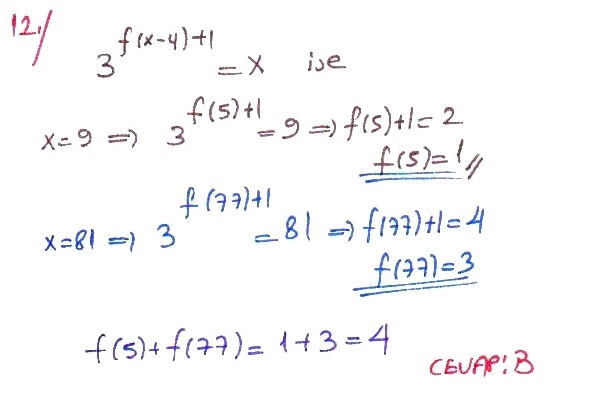 12./
3^{f(x-4)+1} = x ise
x=9 ⇒ 3^{f(5)+1} = 9 ⇒ f(5)+1=2
f(5)=1 //
x=81 ⇒ 3^{f(77)+1} = 81 ⇒ f(77)+1=4
f(77)=3
f(5)+f(77)= 1+3=4
CEVAP: B